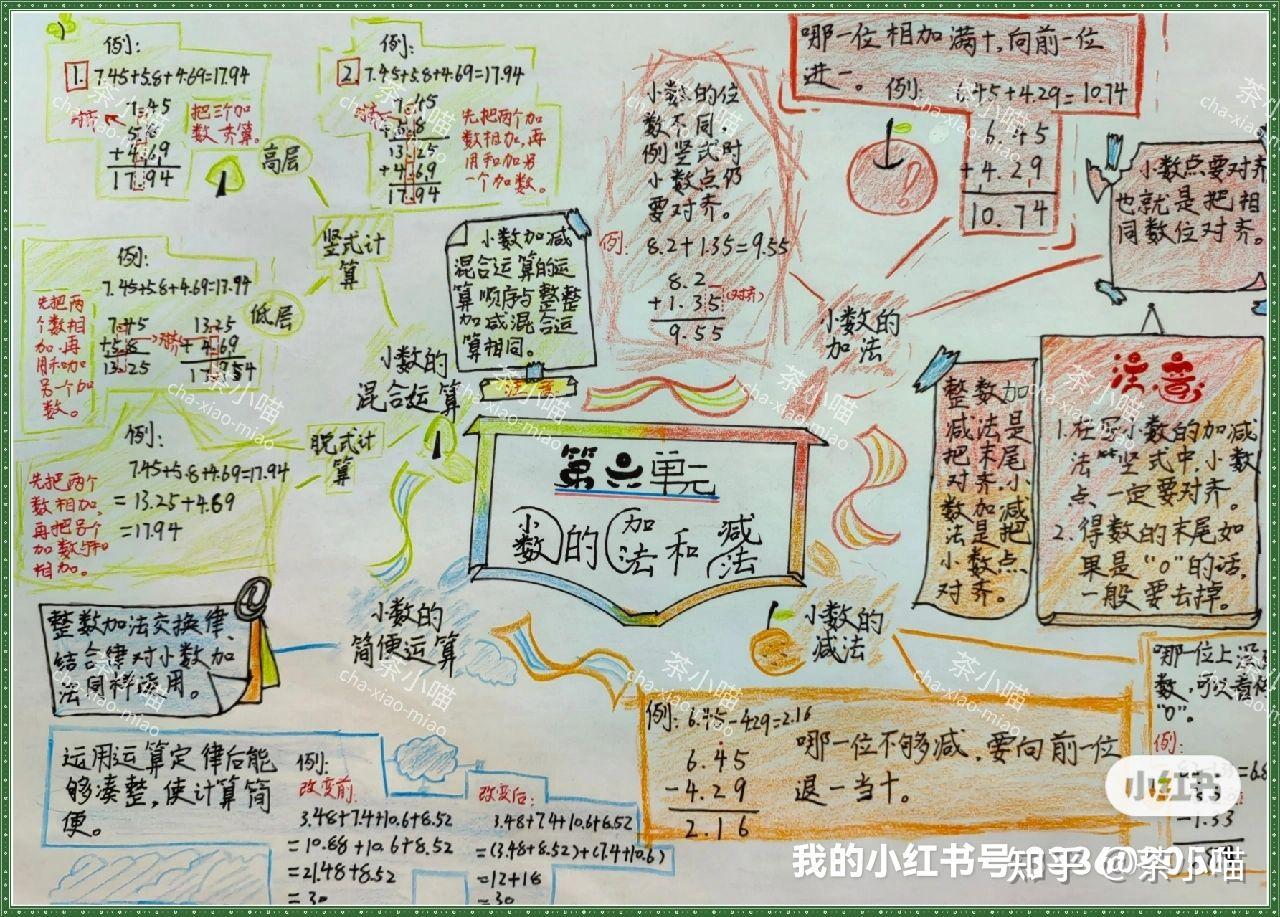 第六单元
小数的加法和减法
小数的
混合运算
竖式计
算
高层
例:
1. 7.45+5.8+4.69=17.94
7.45
5.8
+4.69
17.94
把三个加
数齐算。
例:
2. 7.45+5.8+4.69=17.94
7.45
+5.8
13.25
+4.69
17.94
先把两个加
数相加,再
用和加另
一个加数。
低层
例:
7.45+5.8+4.69=17.94
7.45
+5.8
13.25
13.25
+4.69
先把两
个数相
加,再
用和加
另一个加
数。
脱式计
算
例:
7.45+5.8+4.69=17.94
=13.25+4.69
=17.94
先把两个
数相加,
再把另个
加数与和
相加。
小数加减
混合运算的运
算顺序与整整
加减混合运
算相同。
小数的
加法
小数的位
数不同,
例竖式时
小数点仍
要对齐。
例:
8.2+1.35=9.55
8.2
+1.35
(对齐)
9.55
哪一位相加满十,向前一位
进一。 例: 6.45+4.29=10.74
6.45
+4.29
10.74
小数点要对齐
也就是把相
同数位对齐。
整数加
减法是
把末尾
对齐,小
数加减
法是把
小数点
对齐。
注意
1. 在写小数的加减
法竖式中,小数
点一定要对齐。
2. 得数的末尾如
果是“0”的话,
一般要去掉。
小数的
减法
例: 6.45-4.29=2.16
6.45
-4.29
2.16
哪一位不够减,要向前一位
退一当十。
哪一位上没
数,可以看作
“0”。
例:
-1.33
小数的
简便运算
整数加法交换律、
结合律对小数加
法同样适用。
运用运算定律后能
够凑整,使计算简
便。
例:
改变前:
3.48+7.4+10.6+8.52
=10.88+10.6+8.52
=21.48+8.52
=30
改变后:
3.48+7.4+10.6+8.52
=(3.48+8.52)+(7.4+10.6)
=12+18
=30
茶小喵
cha-xiao-miao
小红书
我的小红书号:
知乎 @茶小喵